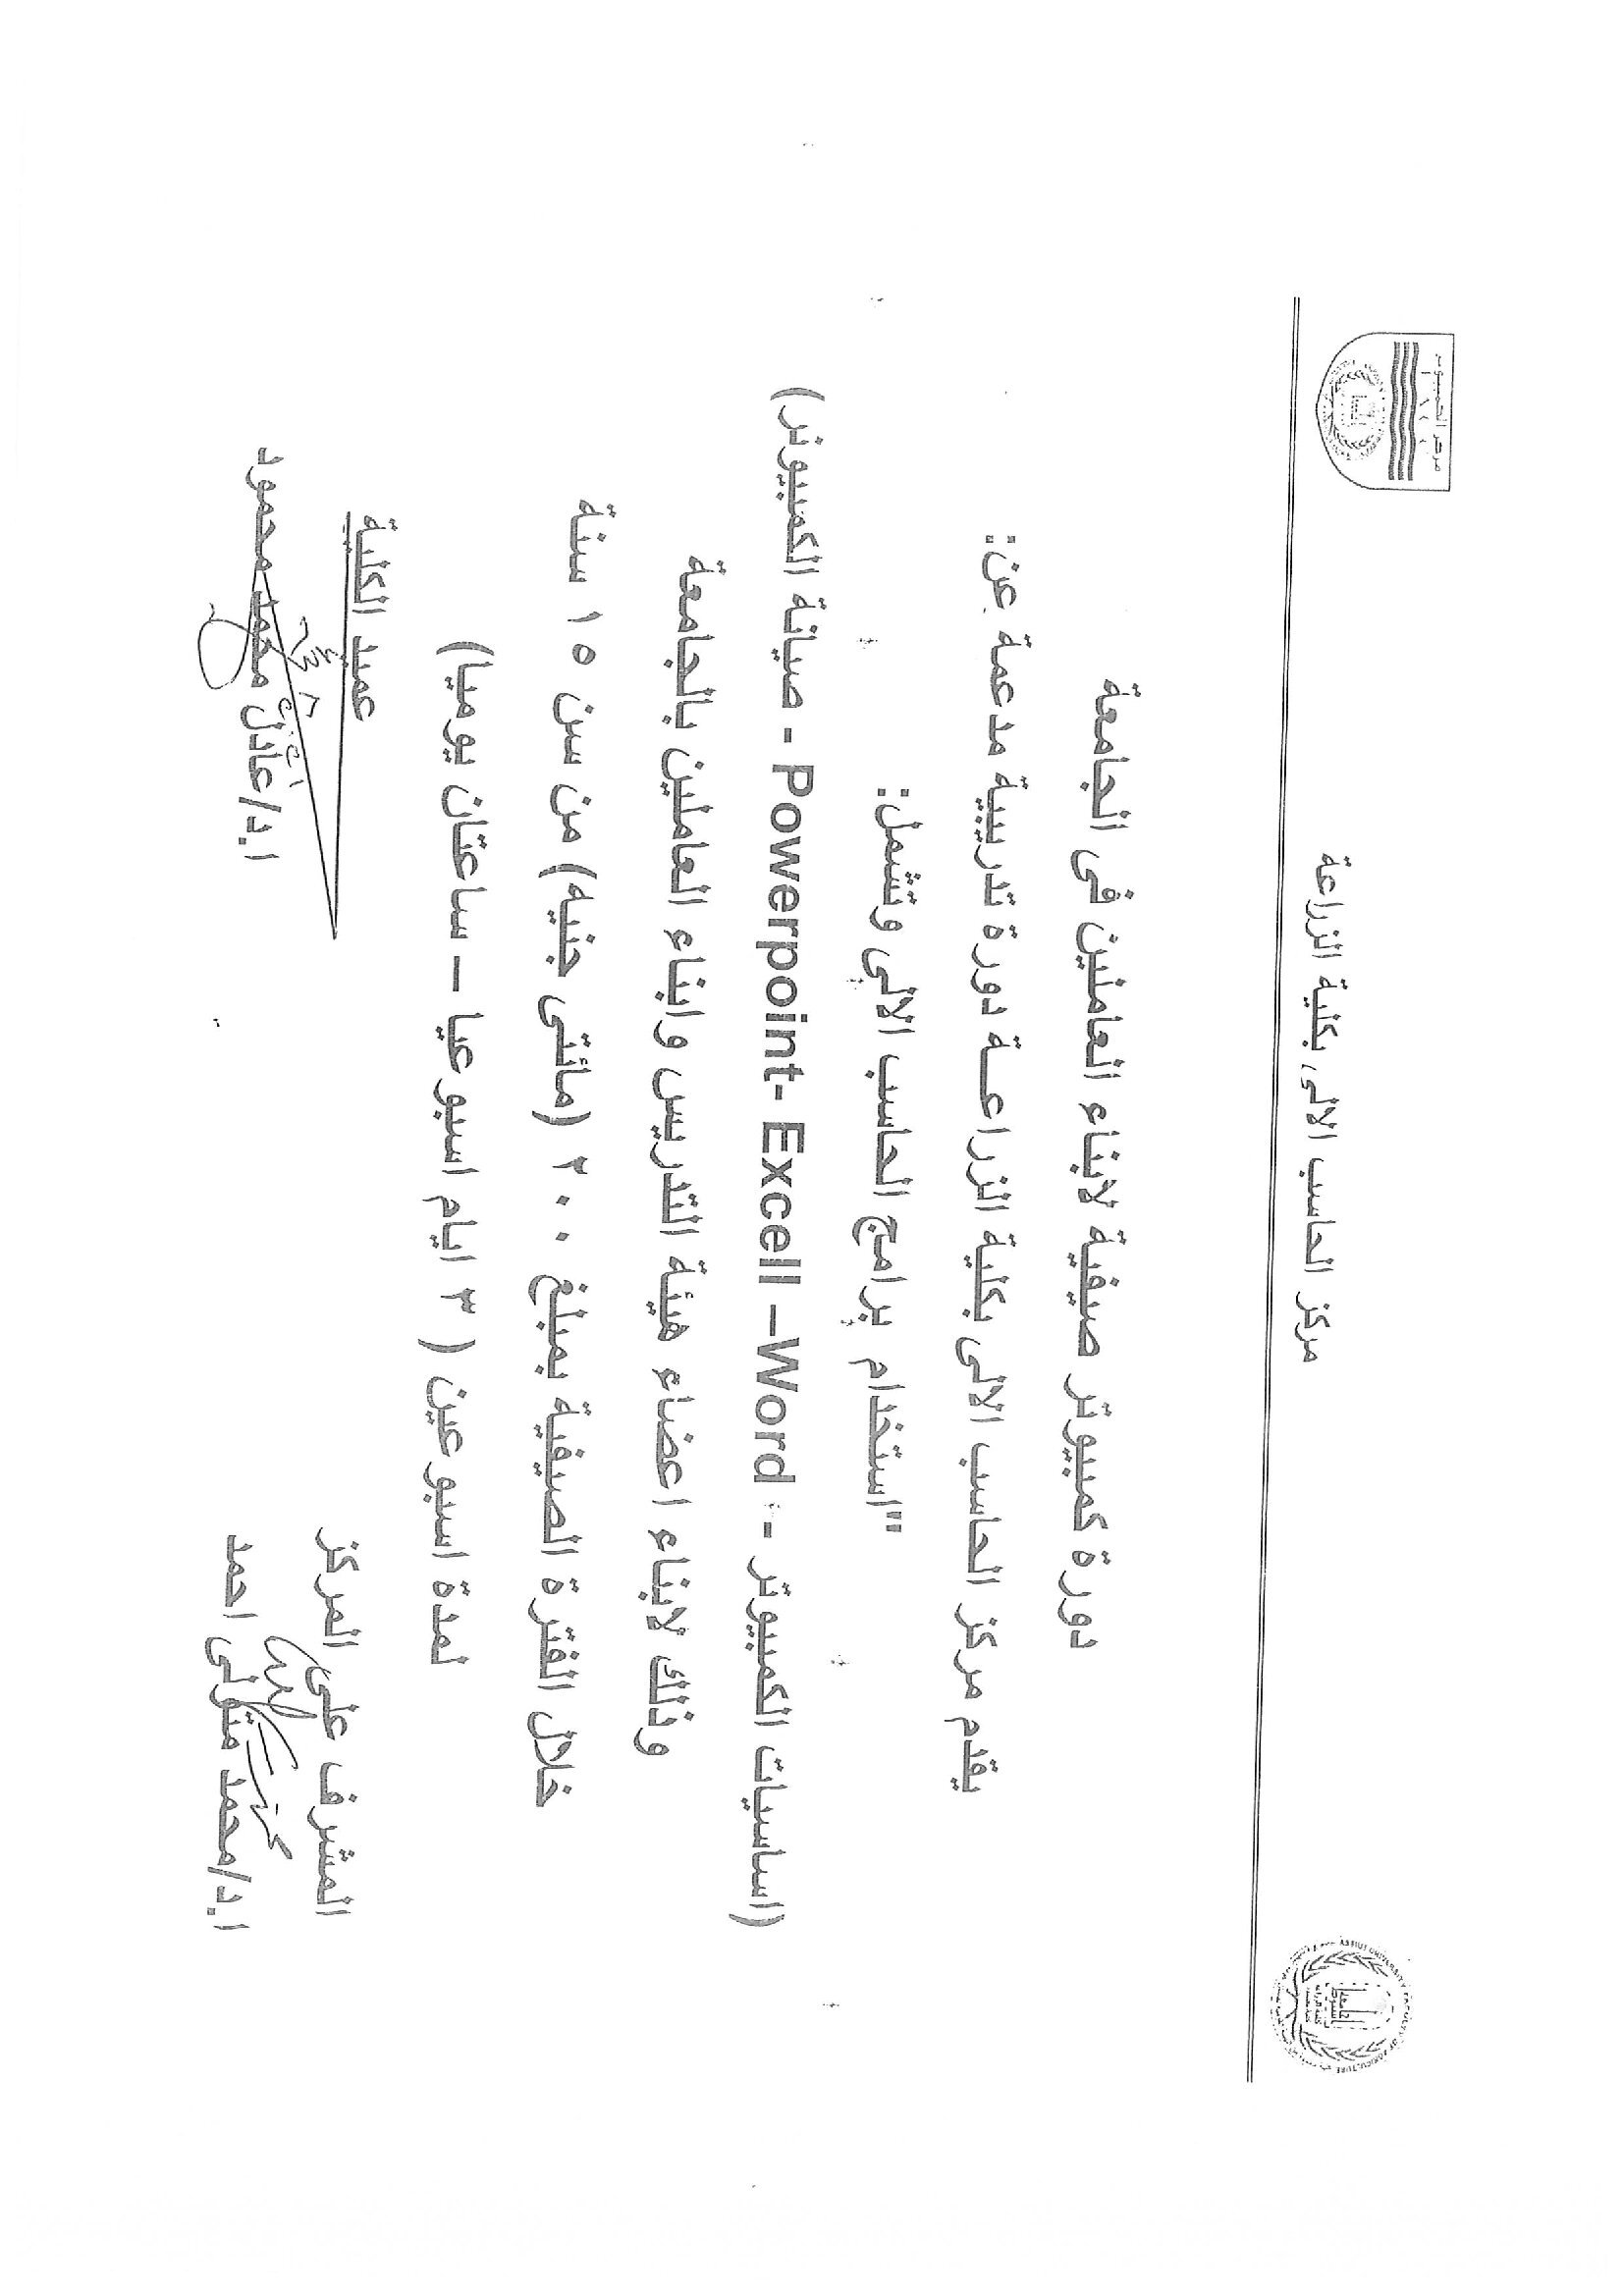 مركز الحاسب الالى بكلية الزراعة
دورة كمبيوتر صيفية لابناء العاملين فى الجامعة
يقدم مركز الحاسب الالى بكلية الزراعـة دورة تدريبية مدعمة عن:
"استخدام برامج الحاسب الالى وتشمل:
(اساسيات الكمبيوتر - Powerpoint- Excell –Word - صيانة الكمبيوتر)
وذلك لابناء اعضاء هيئة التدريس وابناء العاملين بالجامعة
خلال الفترة الصيفية بمبلغ ٢٠٠ (مائتى جنيه) من سن ١٥ سنة
لمدة اسبوعين ( ٣ ايام اسبوعيا – ساعتان يوميا)
المشرف على المركز
عميد الكلية
ا.د/محمد متولى احمد
ا.د/عادل محمد محمود
ASSIUT UNIVERSITY FACULTY OF AGRICULTURE